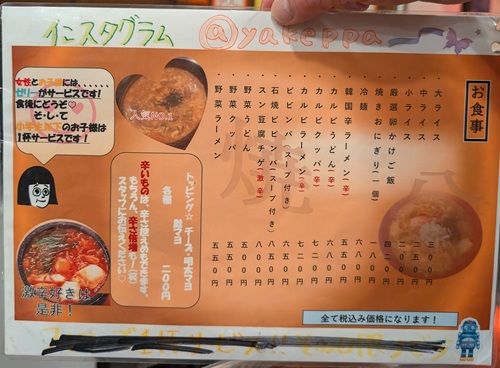 インスタグラム @yakeppa
女性とお子様には、……
ゼリーがサービスです!
食後にどうぞ♡
そ・し・て
小学生以下のお子様は
1杯サービスです!
人気NO.1
お食事
・大ライス 三〇〇円
・中ライス 二五〇円
・小ライス 二〇〇円
・厳選卵かけご飯 四二〇円
・焼きおにぎり(一個) 一八〇円
・冷麺
・韓国辛ラーメン(辛) 五五〇円
・カルビうどん(辛) 六八〇円
・カルビクッパ(辛) 七二〇円
・ビビンバ(スープ付き) 六五〇円
・石焼ビビンバ(スープ付き) 八五〇円
・スン豆腐チゲ(激辛) 八〇〇円
・野菜うどん 五五〇円
・野菜クッパ 五五〇円
・野菜ラーメン 五五〇円
トッピング☆ チーズ・明太マヨ
髭マヨ
各種 二〇〇円
辛いものは、辛さ控えめもだせます。
もちろん、辛さ倍増も!(笑)
スタッフにお伝えください♡
激辛好きは
是非!
全て税込み価格になります!